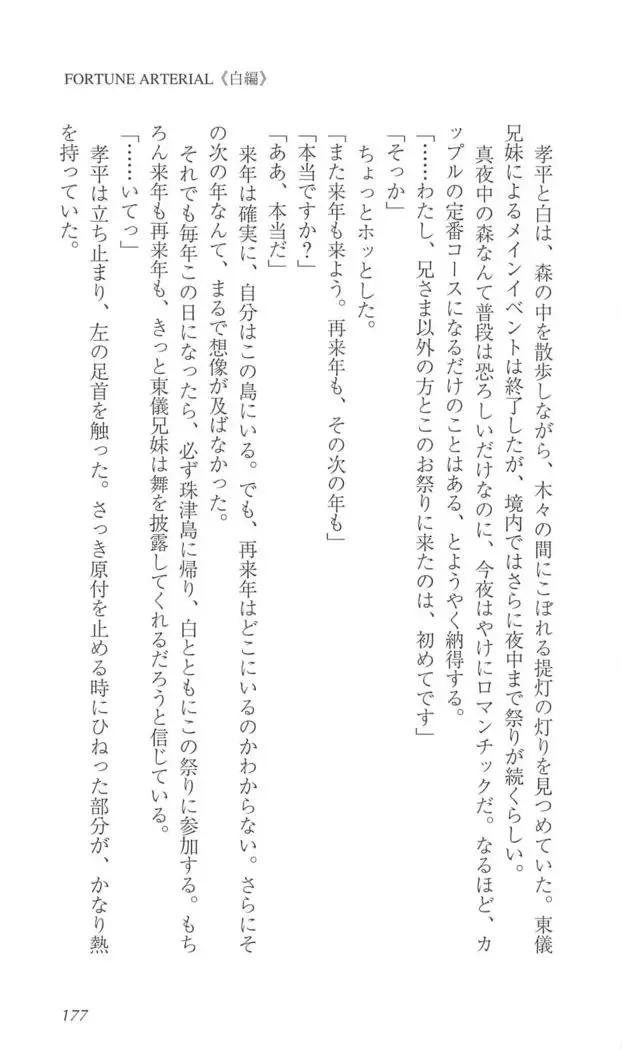 FORTUNE ARTERIAL《白編》
　孝平と白は、森の中を散歩しながら、木々の間にこぼれる提灯の灯りを見つめていた。東儀
兄妹によるメインイベントは終了したが、境内ではさらに夜中まで祭りが続くらしい。
　真夜中の森なんて普段は恐ろしいだけなのに、今夜はやけにロマンチックだ。なるほど、カ
ップルの定番コースになるだけのことはある、とようやく納得する。
「……わたし、兄さま以外の方とこのお祭りに来たのは、初めてです」
「そっか」
　ちょっとホッとした。
「また来年も来よう。再来年も、その次の年も」
「本当ですか？」
「ああ、本当だ」
　来年は確実に、自分はこの島にいる。でも、再来年はどこにいるのかわからない。さらにそ
の次の年なんて、まるで想像が及ばなかった。
　それでも毎年この日になったら、必ず珠津島に帰り、白とともにこの祭りに参加する。もち
ろん来年も再来年も、きっと東儀兄妹は舞を披露してくれるだろうと信じている。
「……いてっ」
　孝平は立ち止まり、左の足首を触った。さっき原付を止める時にひねった部分が、かなり熱
を持っていた。
177